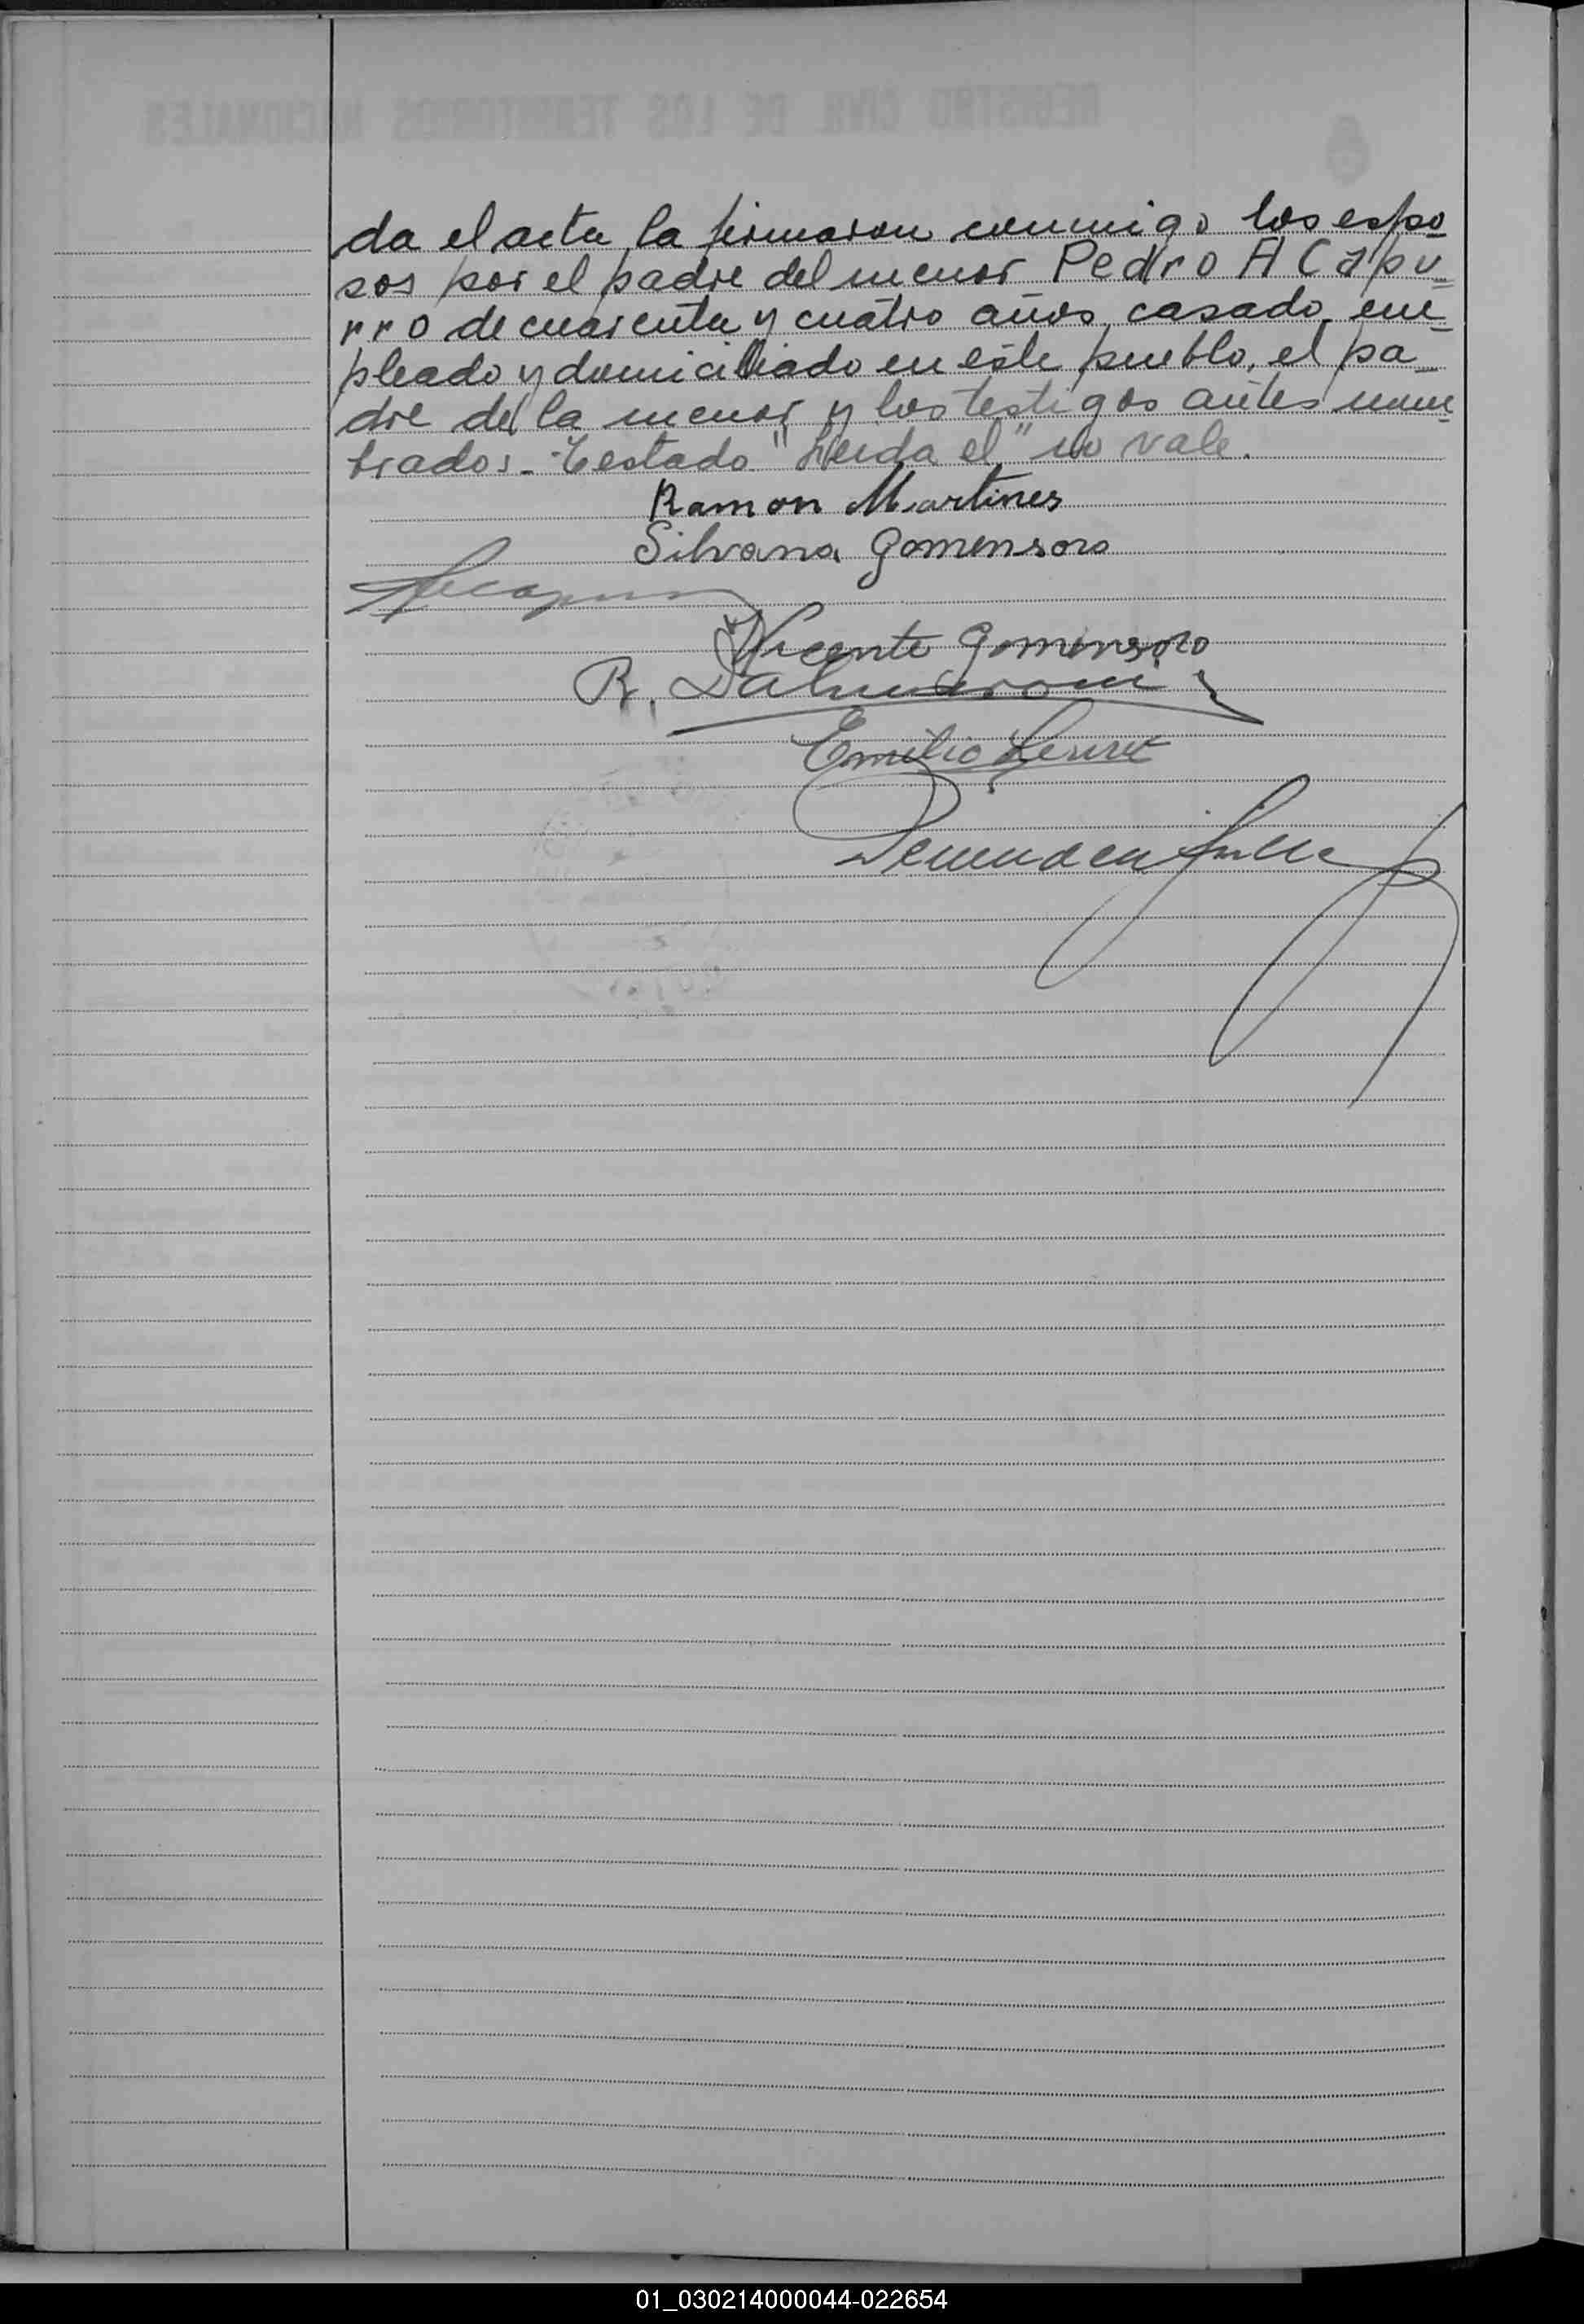 da el acta la firmaron conmigo los espo
sos por el padre del menor Pedro A Capu
rro de cuarenta y cuatro años, casado, em
pleado y domiciliado en este pueblo, el pa
dre de la menor y los testigos antes nom
brados. Testado "Leida el" no vale.
Ramon Martines
Silvana Gomensoro
Vicente Gomensoro
R. Dalmaroni
Emilio
01_030214000044-022654